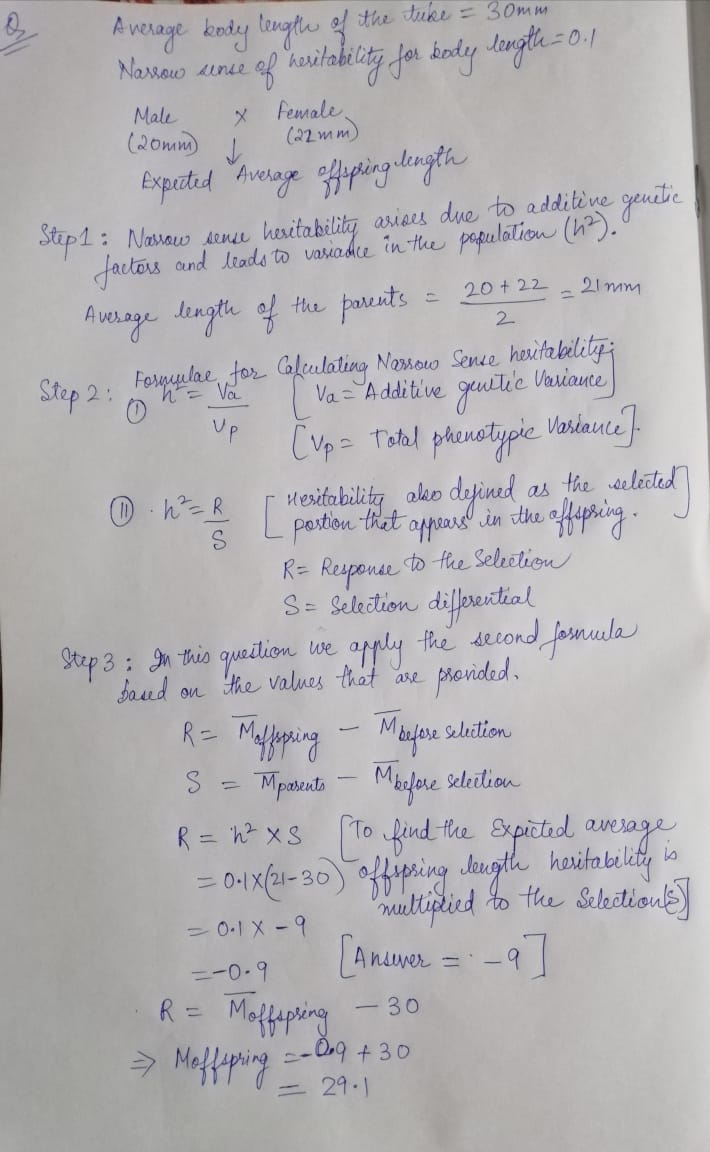 Q
Average body length of the tube = 30mm
Narrow sense of heritability for body length = 0.1
Male × Female
(20mm) ↓ (22mm)
Expected Average offspring length
Step 1 : Narrow sense heritability arises due to additive genetic
factors and leads to variance in the population (h²).
Average length of the parents = 20 + 22 / 2 = 21mm
Step 2 : Formulae for Calculating Narrow Sense heritability;
① h² = Va / Vp [Va = Additive genetic Variance]
[Vp = Total phenotypic Variance].
② . h² = R / S [Heritability also defined as the selected
portion that appears in the offspring.]
R = Response to the Selection
S = Selection differential
Step 3 : In this question we apply the second formula
based on the values that are provided.
R = M̅offspring − M̅before selection
S = M̅parents − M̅before selection
R = h² × S [To find the Expected average
= 0.1×(21-30) offspring length heritability is
multiplied to the Selection(S)]
= 0.1 × -9
= -0.9 [Answer = -9]
R = M̅offspring − 30
⇒ Moffspring = -0.9 + 30
= 29.1